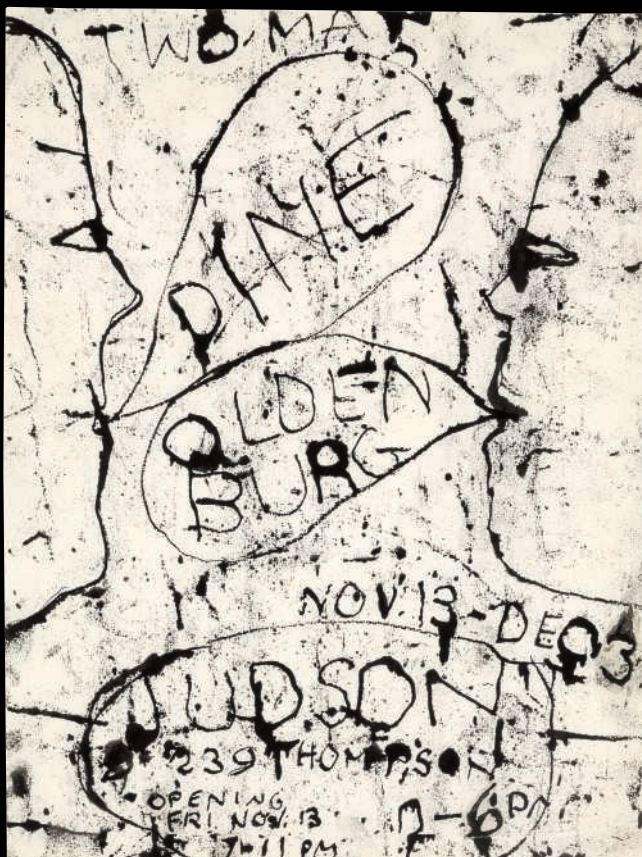 TWO MAN
DINE
OLDEN
BURG
NOV. 13-DEC 3
JUDSON
239 THOMPSON
OPENING
FRI NOV. 13
7-11 PM